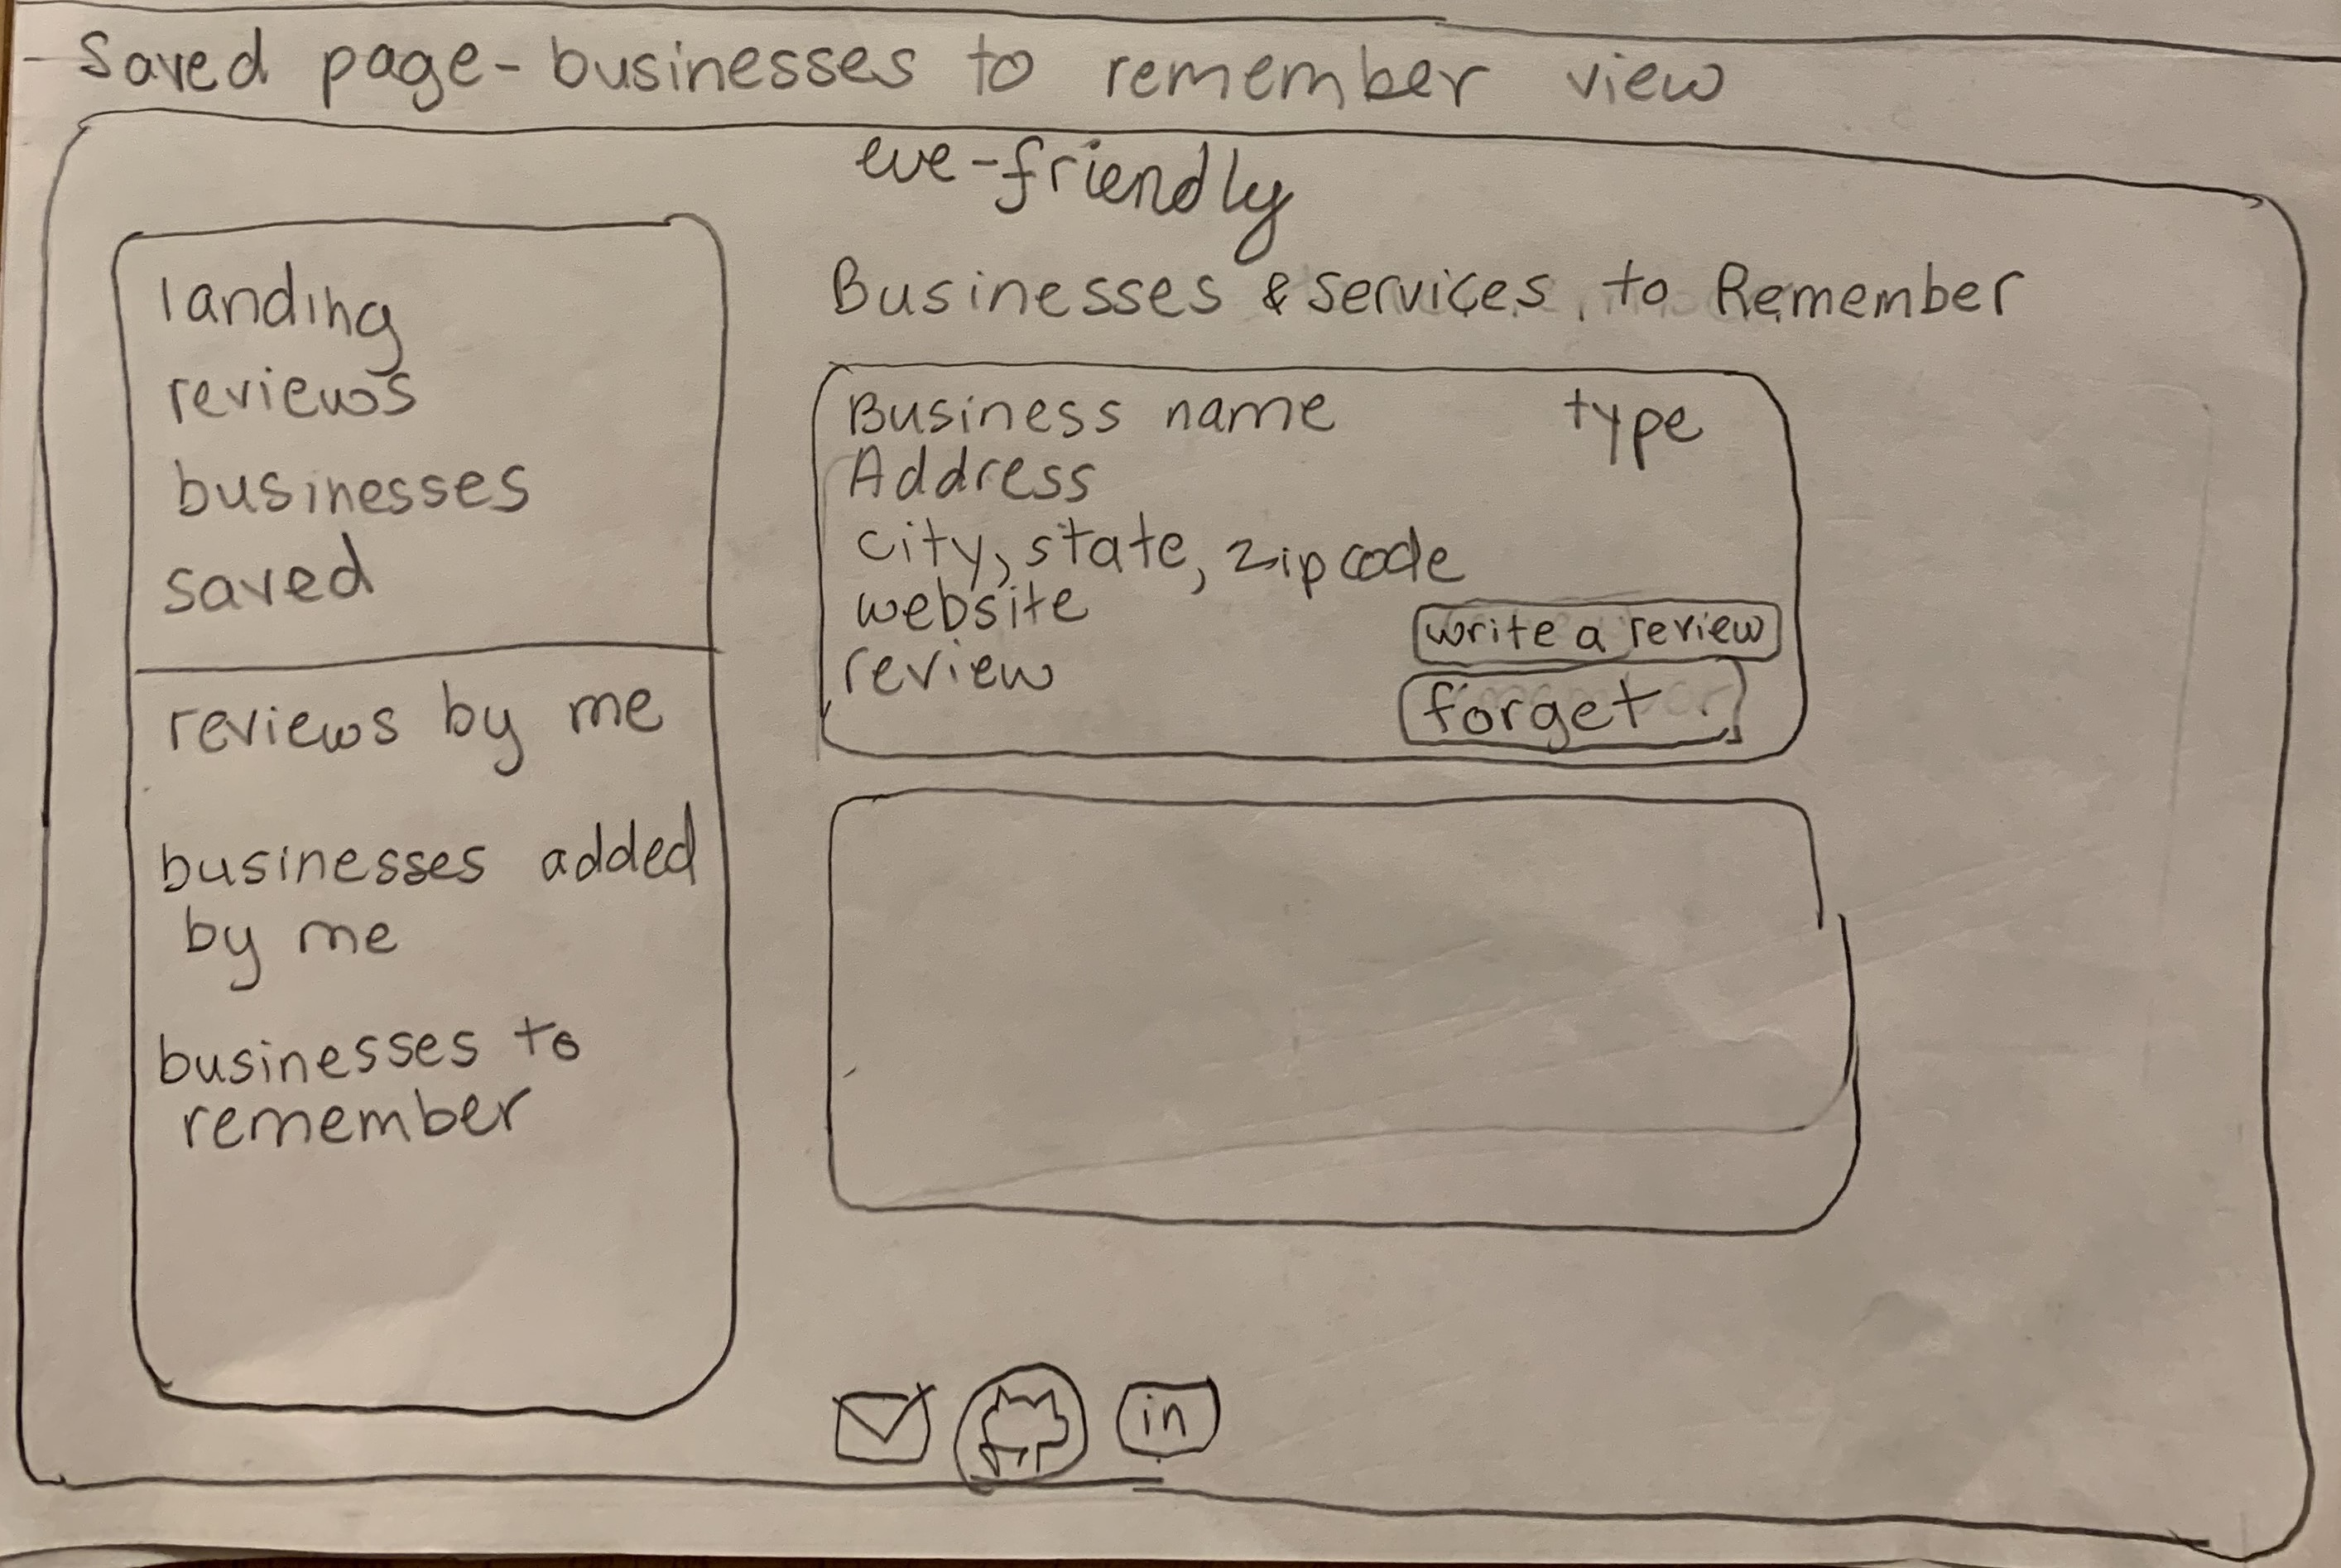 - Saved page - businesses to remember view
eve-friendly
landing
reviews
businesses
saved
reviews by me
businesses added
by me
businesses to
remember
Businesses & Services to Remember
Business name type
Address
city, state, zip code
website
write a review
review
forget
in